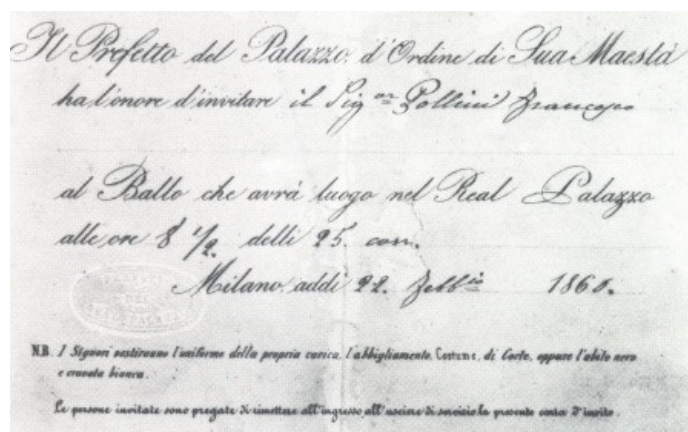 Il Prefetto del Palazzo, d'Ordine di Sua Maestà
ha l'onore d'invitare il Sig.or Pollini Francesco
al Ballo che avrà luogo nel Real Palazzo
alle ore 8 1/2. delli 25. corr.
Milano. addì 22. Febb.io 1860.
N.B. I Signori vestiranno l'uniforme della propria carica, l'abbigliamento, Costume, di Corte, oppure l'abito nero
e cravata bianca.
Le persone invitate sono pregate di rimettere all'ingresso, all'usciere di servizio la presente carta d'invito.